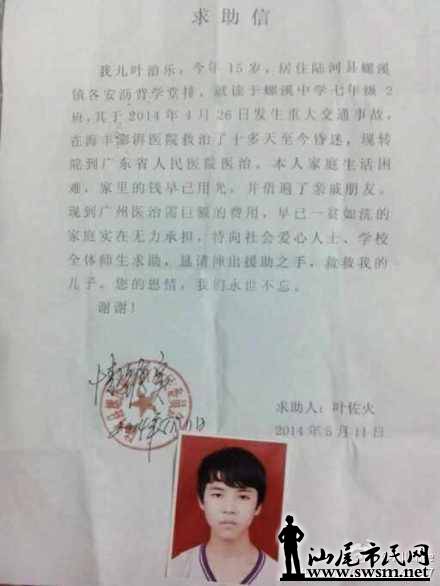 求助信
我儿叶治乐，今年15岁，居住陆河县螺溪
镇各安沥背学堂排，就读于螺溪中学七年级2
班，其于2014年4月26日发生重大交通事故，
在海丰澎湃医院救治了十多天至今昏迷，现转
院到广东省人民医院医治。本人家庭生活困
难，家里的钱早已用光，并借遍了亲戚朋友。
现到广州医治需巨额的费用，早已一贫如洗的
家庭实在无力承担，特向社会爱心人士、学校
全体师生求助，恳请伸出援助之手，救救我的
儿子。您的恩情，我们永世不忘。
谢谢！
求助人：叶佐火
2014年5月11日
汕尾市民网
www.swsm.net